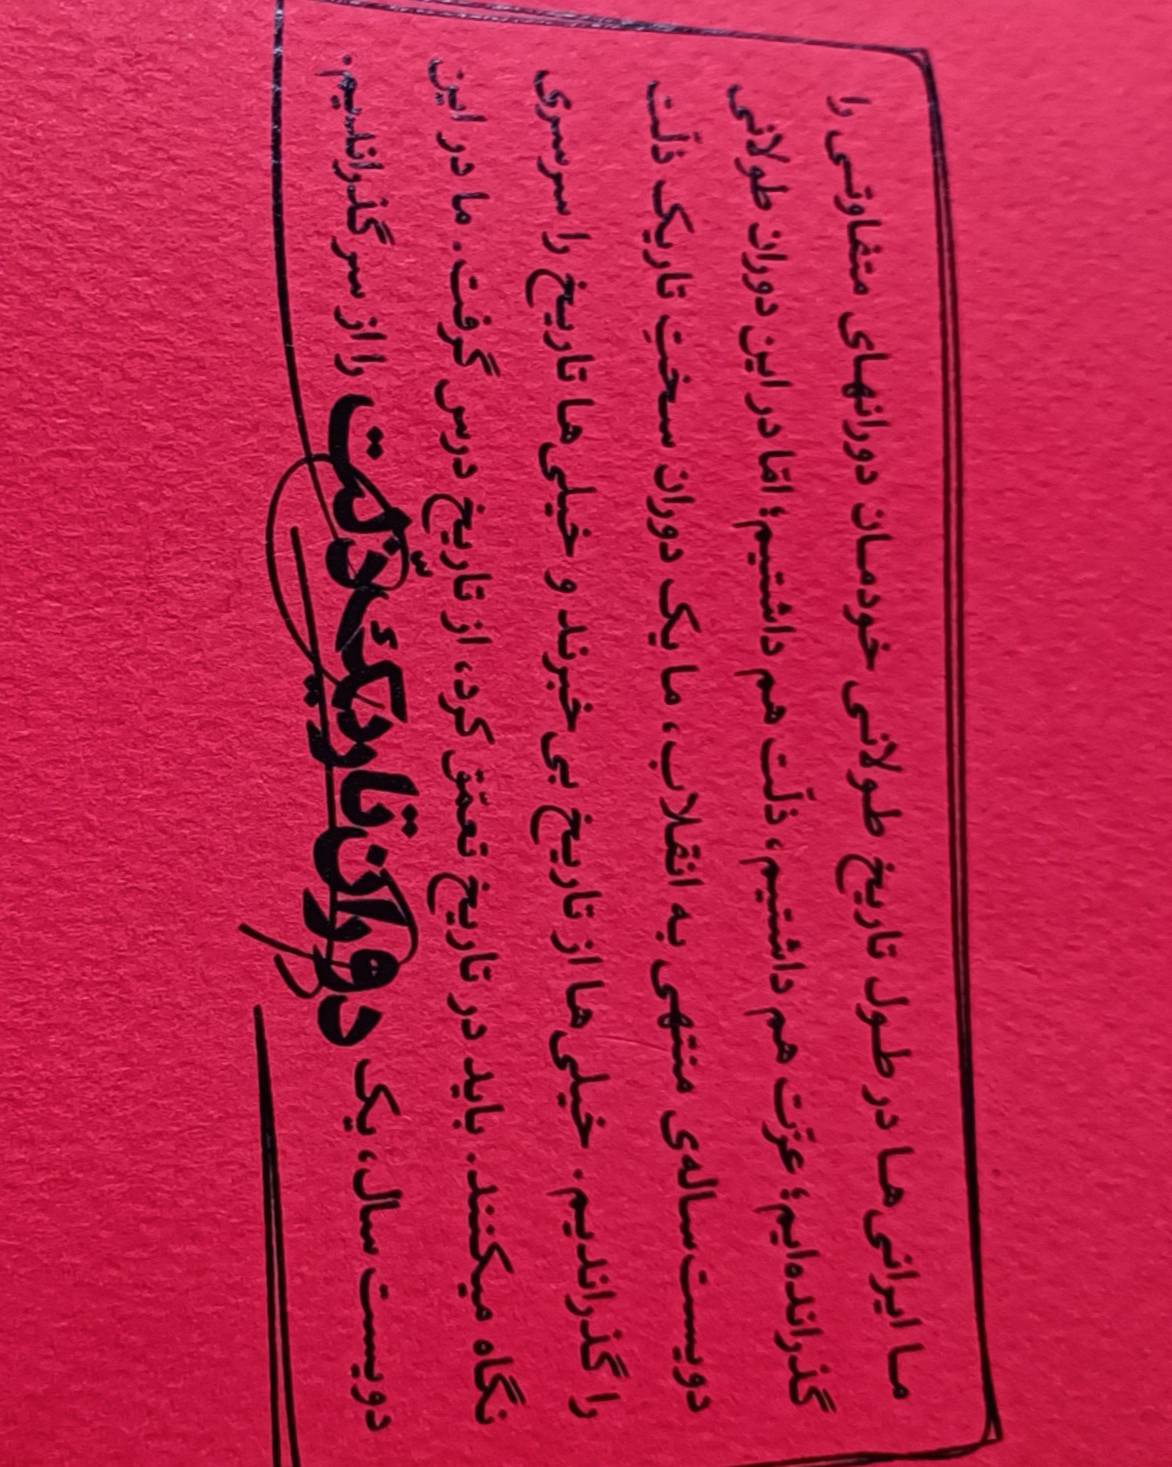 ما ایرانی‌ها در طول تاریخ طولانی خودمان دورانهای متفاوتی را
گذرانده‌ایم؛ عزّت هم داشتیم، ذلّت هم داشتیم؛ امّا در این دوران طولانی
دویست‌ساله‌ی منتهی به انقلاب، ما یک دوران سختِ تاریک ذلّت
را گذراندیم. خیلی‌ها از تاریخ بی‌خبرند و خیلی‌ها تاریخ را سرسری
نگاه میکنند. باید در تاریخ تعمّق کرد، از تاریخ درس گرفت. ما در این
دویست سال، یک دوران تاریک ذلّت را از سر گذراندیم.